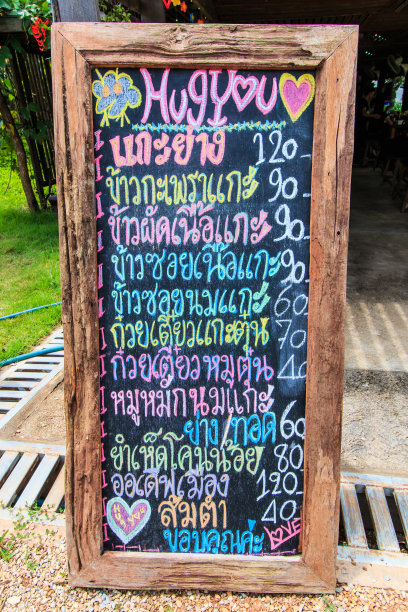 Hug YOU
แกะย่าง 120.-
ข้าวกะเพราแกะ 90.-
ข้าวผัดเนื้อแกะ 90.-
ข้าวซอยเนื้อแกะ 90.-
ข้าวซอยนมแกะ 60.-
ก๋วยเตี๋ยวแกะตุ๋น 70.-
ก๋วยเตี๋ยวหมูตุ๋น 40.-
หมูหมักนมแกะ
ย่าง/ทอด 60.-
ยำเห็ดโคนน้อย 80.-
ออเดิฟเมือง 120.-
ส้มตำ 40.-
ขอบคุณค่ะ
LOVE